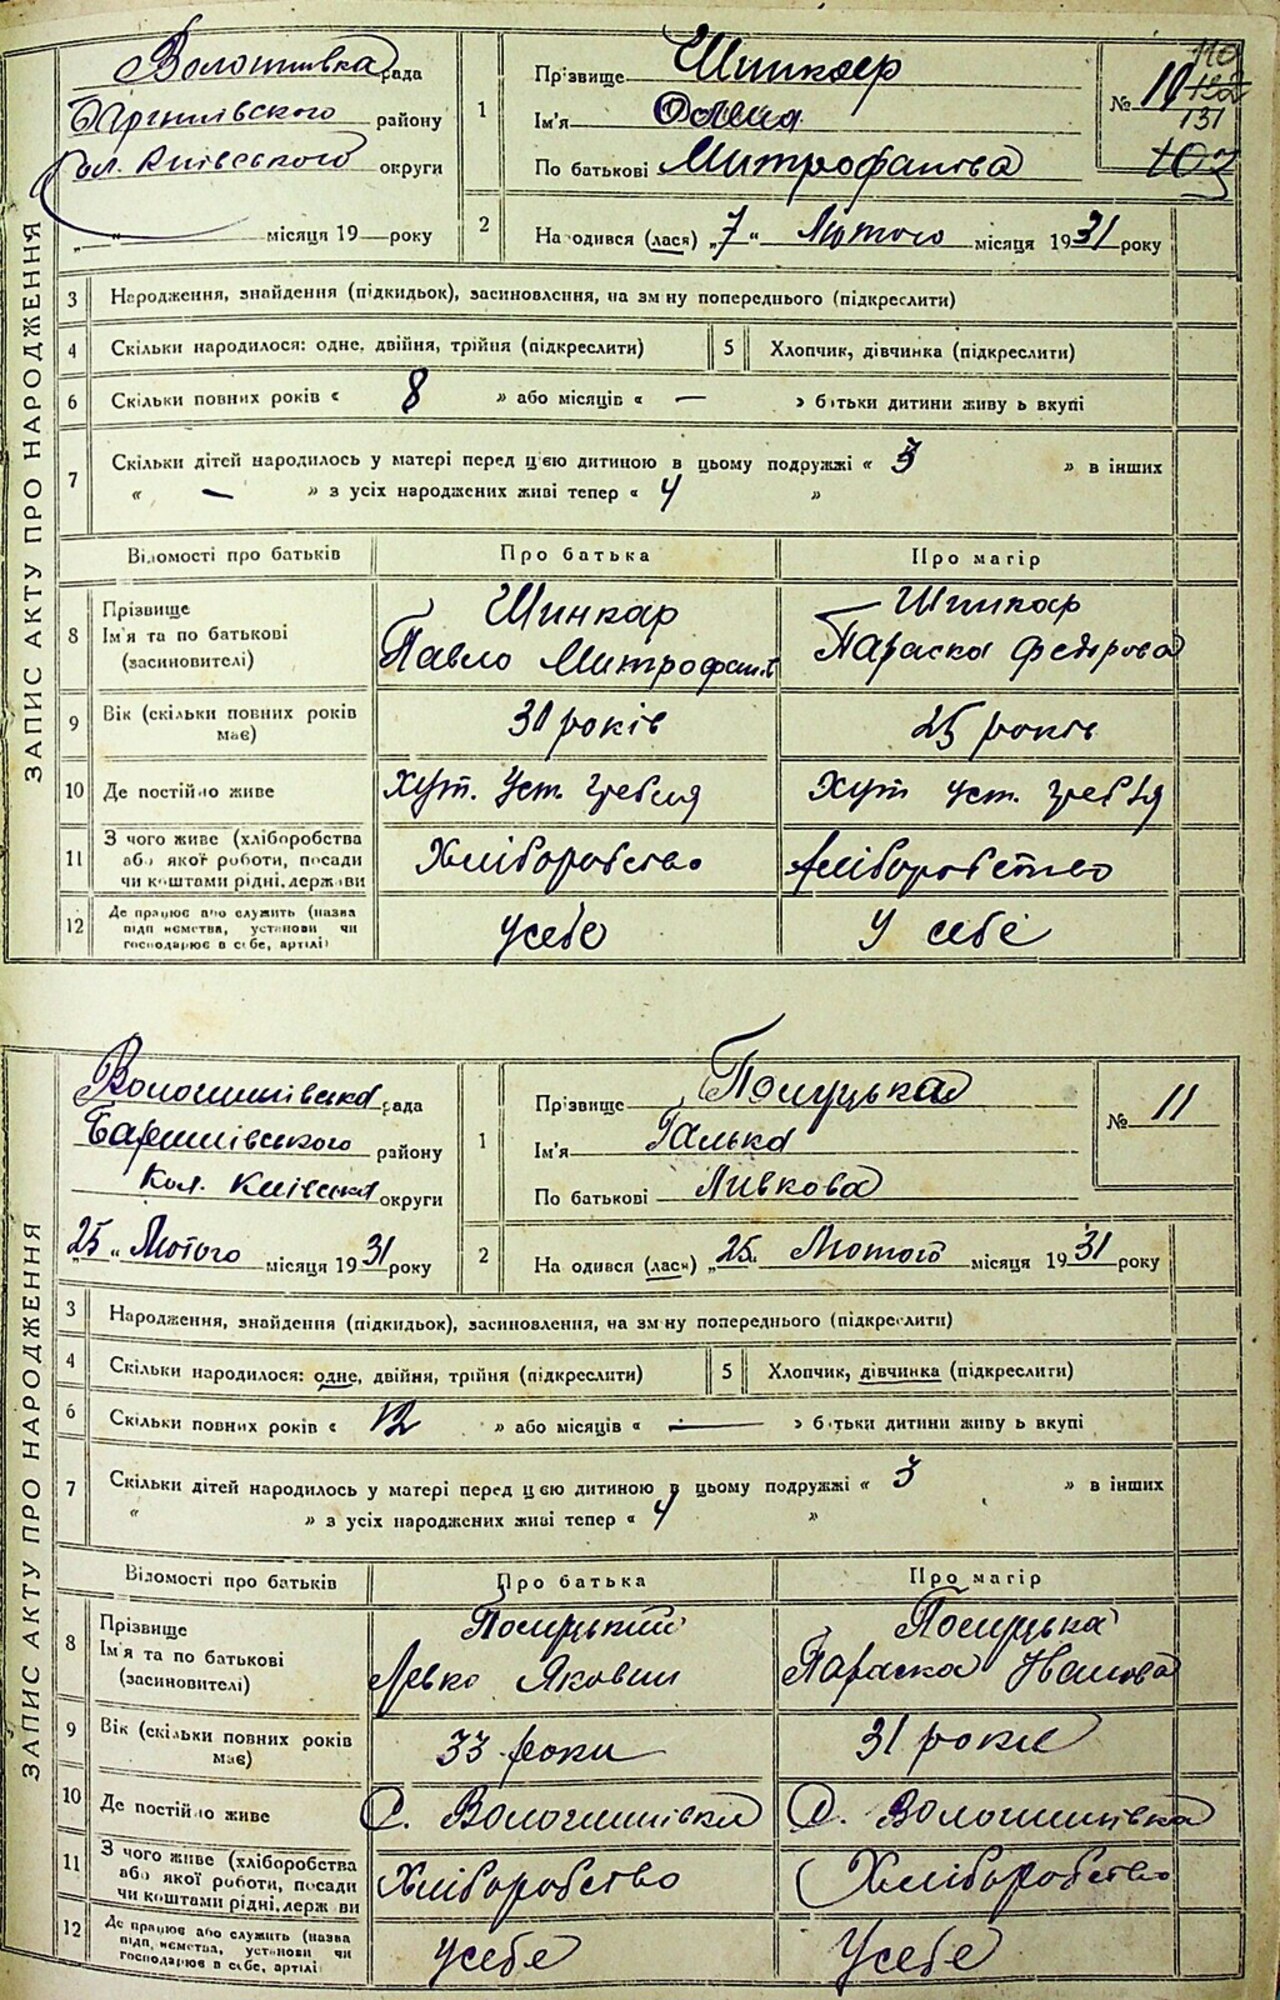 ЗАПИС АКТУ ПРО НАРОДЖЕННЯ
Волошинівка рада
району
Кол. Київського округи
„ “ місяця 19 року
1 Прізвище Шинкар
Ім'я Олена
По батькові Митрофанова
№ 10
110
132
131
103
2 На одився (лася) „7“ Лютого місяця 1931 року
3 Народження, знайдення (підкидьок), засиновлення, на зм ну попереднього (підкреслити)
4 Скільки народилося: одне, двійня, трійня (підкреслити) 5 Хлопчик, дівчинка (підкреслити)
6 Скільки повних років « 8 » або місяців « — » батьки дитини живу ь вкупі
7 Скільки дітей народилось у матері перед цією дитиною в цьому подружжі « 3 » в інших
« — » з усіх народжених живі тепер « 4 »
Відомості про батьків Про батька Про матір
8 Прізвище Шинкар Шинкар
Ім'я та по батькові Павло Митрофанів Параска Федорова
(засиновителі)
9 Вік (скільки повних років має) 30 років 25 років
10 Де постійно живе Хут. Уст. Гребля Хут Уст. Гребля
11 З чого живе (хліборобства або якої роботи, посади чи коштами рідні, держави Хліборобство Хліборобство
12 Де працює або служить (назва підп иємства, установи чи господарює в себе, артілі) Усебе У себе
ЗАПИС АКТУ ПРО НАРОДЖЕННЯ
Волошинівська рада
Баришівського району
Кол. Київська округи
„25“ Лютого місяця 1931 року
1 Прізвище Полуцька
Ім'я Галька
По батькові Ливкова
№ 11
2 На одився (лася) „25“ Лютого місяця 1931 року
3 Народження, знайдення (підкидьок), засиновлення, на зм ну попереднього (підкреслити)
4 Скільки народилося: одне, двійня, трійня (підкреслити) 5 Хлопчик, дівчинка (підкреслити)
6 Скільки повних років « 12 » або місяців « — » батьки дитини живу ь вкупі
7 Скільки дітей народилось у матері перед цією дитиною в цьому подружжі « 3 » в інших
« » з усіх народжених живі тепер « 4 »
Відомості про батьків Про батька Про матір
8 Прізвище Полуцький Полуцька
Ім'я та по батькові Левко Якович Параска Иванова
(засиновителі)
9 Вік (скільки повних років має) 33 роки 31 років
10 Де постійно живе С. Волошинівка С. Волошинівка
11 З чого живе (хліборобства або якої роботи, посади чи коштами рідні, держ ви Хліборобство Хліборобство
12 Де працює або служить (назва підп иємства, установи чи господарює в себе, артілі Усебе Усебе